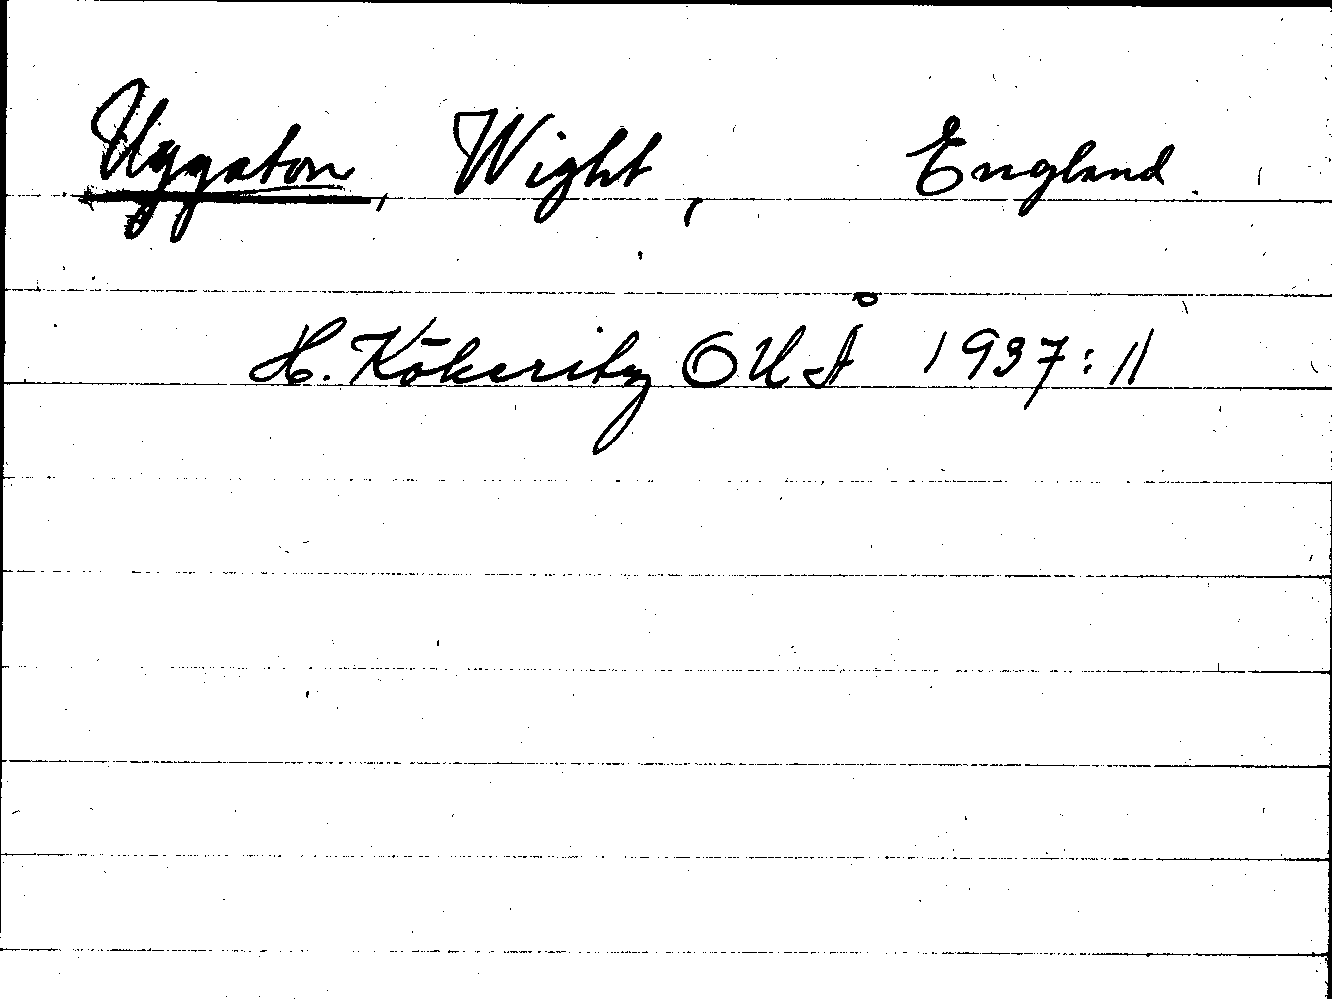 Uggaton, Wight, England.
H. Kökeritz OUÅ 1937:11